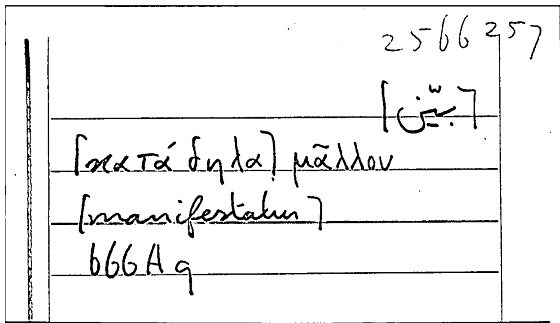 2566257
[κατάδηλα] μᾶλλον
[manifestatur]
666 A 9